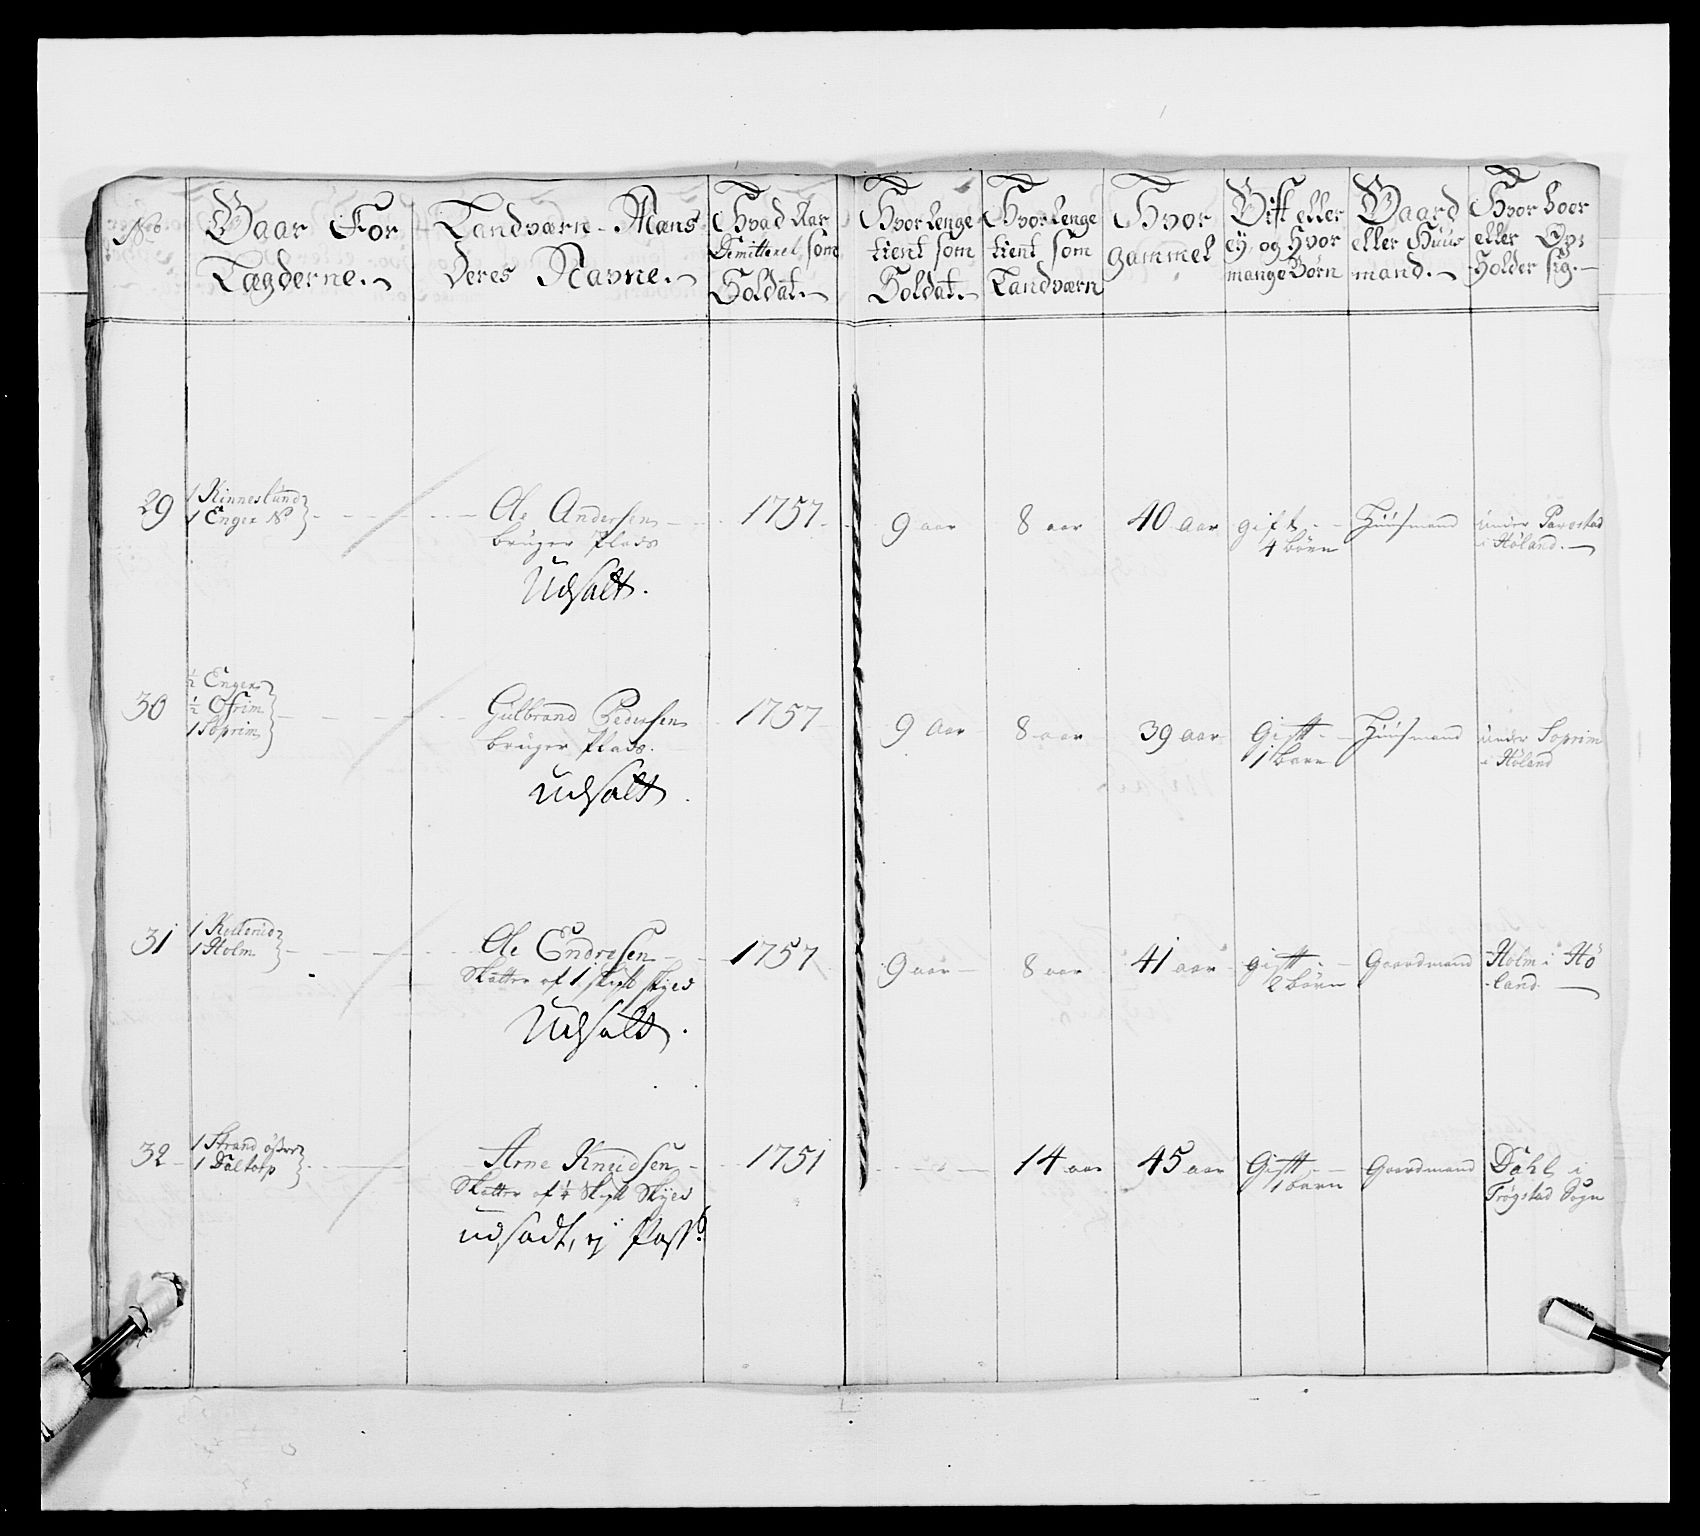 No
Gaar For
Lægderne.
Landværn-Mæns
Deres Navne.
Hvad Aar
Demitteret som
Soldat.
Hvor lenge
tient som
Soldat.
Hvor lenge
tient som
Landværn
Hvor
gammel
Gift eller
ey, og Hvor
mange Børn
Gaard
eller Huus
mand.
Hvor boer
eller Op=
Holder sig.
29
1 Kinneslund
1 Enger
Ole Andersen
bruger Plads
Udsalt.
1757
9 aar
8 aar
40 aar
gift
4 børn
Huusmand
under
i Høland.
30
½ Enger
½ Ofrim
1 Soprim
Gulbrand Pedersen
bruger Plads.
udsalt
1757
9 Aar
8 aar
39 aar
Gift
1 barn
Huusmand
under Soprim
i Høland
31
1 Kollerud
1 Holm
Ole Endresen
Skatter af 1 skpd skyld
Udsalt.
1757
9 aar
8 aar
41 aar
gift
2 børn
Gaardmand
Holm i Hö
land
32
1 Strand øster
1 Daltorp
Arne Knudsen
Skatter af ¼ Skpd Skyld
udsadt, ej Pass.
1751
14 aar
45 aar
Gift
1 barn
Gaardmand
Dahl i
Trögstad Sogn